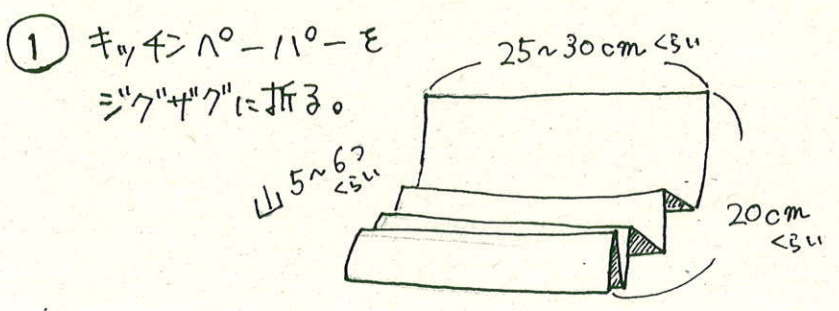 ① キッチンペーパーを
ジグザグに折る。
25～30cmくらい
山5～6つ
くらい
20cm
くらい